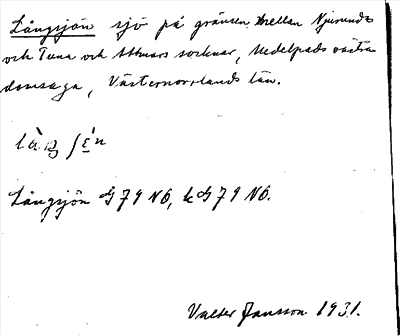 Långsjön sjö på gränsen mellan Njurunda
och Tuna och Attmars socknar, Medelpads västra
domsaga, Västernorrlands län.
Långsjön G 79 NO, k G 79 NO.
Valter Jansson 1931.